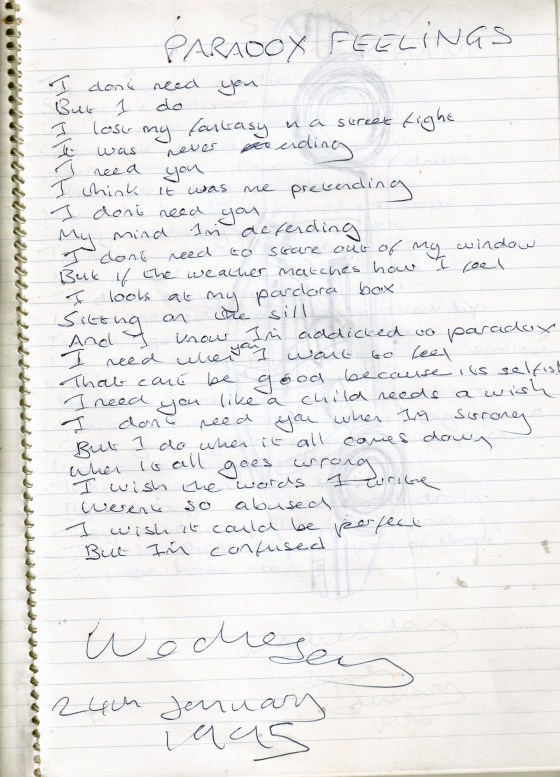 PARADOX FEELINGS
I dont need you
But I do
I lost my fantasy in a street fight
It was never ending
I need you
I think it was me pretending
I dont need you
My mind Im defending
I dont need to stare out of my window
But if the weather matches how I feel
I look at my pardora box
Sitting on the sill
And I know Im addicted to paradox
I need you when I want to feel
That cant be good because its selfish
I need you like a child needs a wish
I dont need you when Im strong
But I do when it all comes down
When it all goes wrong
I wish the words I write
Werent so abused
I wish it could be perfect
But Im confused
Wednesday
24th January
1995